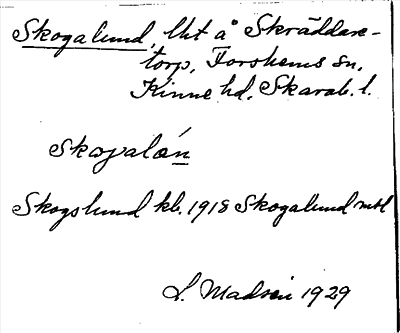 Skogalund, lht å Skräddare-
torp, Forshems sn,
Kinne hd, Skarab. l.
skogalón
Skogslund kb. 1918 Skogalund mtl
L. Madsén 1929